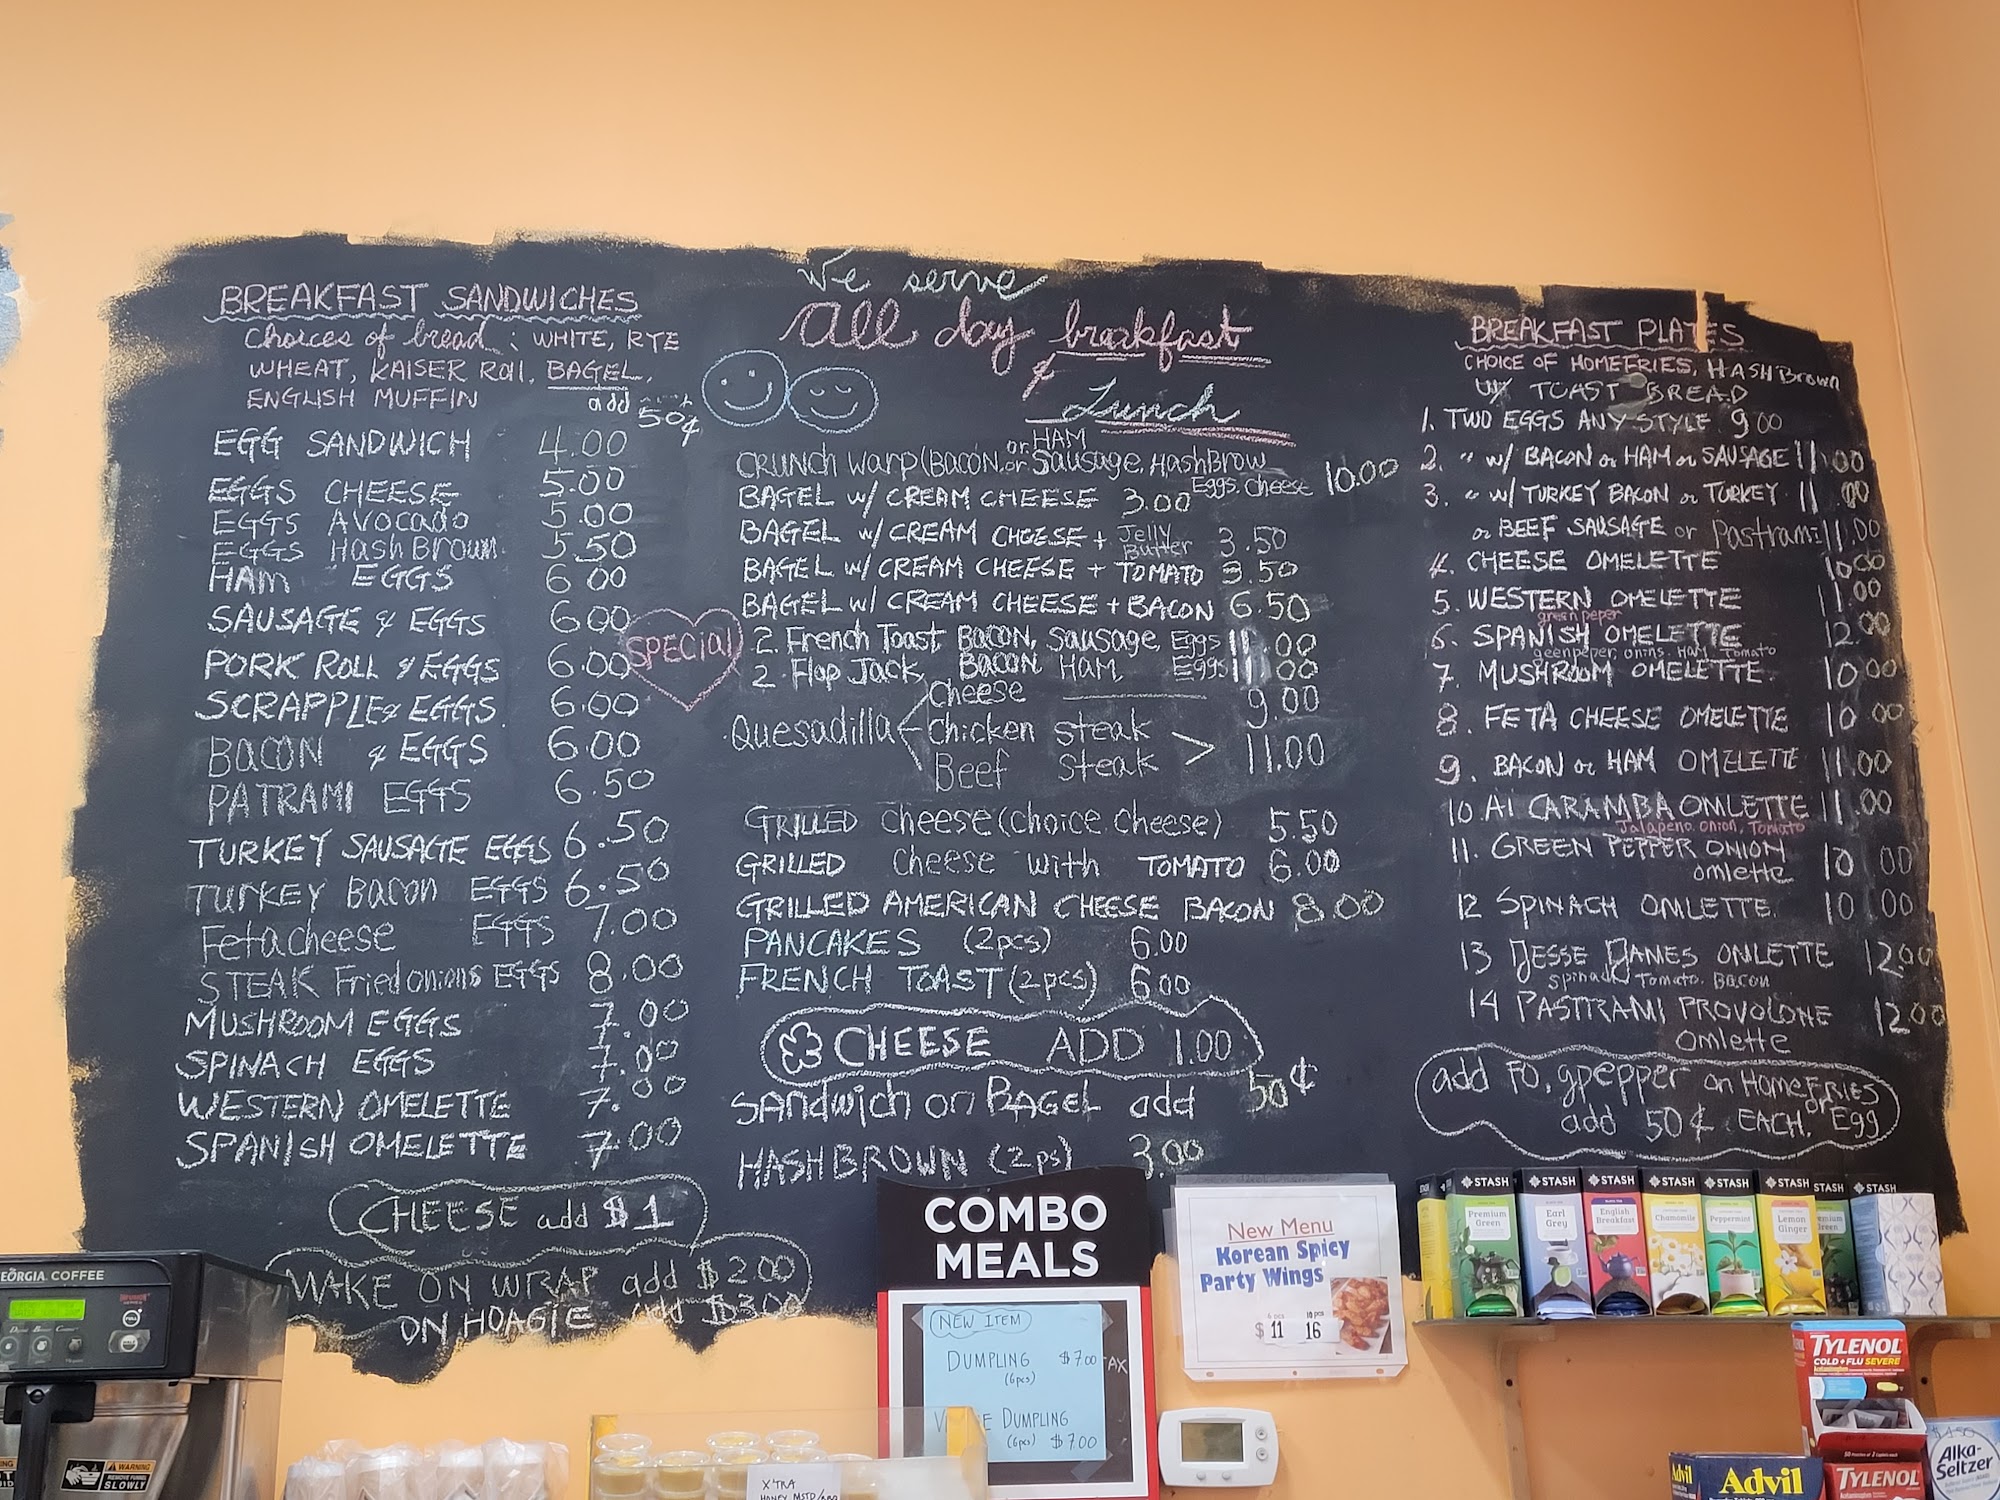 BREAKFAST SANDWICHES
Choices of bread: WHITE, RYE
WHEAT, KAISER Roll, BAGEL,
ENGLISH MUFFIN add 50¢
EGG SANDWICH 4.00
EGGS CHEESE 5.00
EGGS AVOCADO 5.00
EGGS HashBrown 5.50
HAM EGGS 6.00
SAUSAGE & EGGS 6.00
PORK ROLL & EGGS 6.00
SCRAPPLE & EGGS 6.00
BACON & EGGS 6.00
PATRAMI EGGS 6.50
TURKEY SAUSAGE EGGS 6.50
TURKEY BACON EGGS 6.50
Fetacheese EGGS 7.00
STEAK Fried onions EGGS 8.00
MUSHROOM EGGS 7.00
SPINACH EGGS 7.00
WESTERN OMELETTE 7.00
SPANISH OMELETTE 7.00
CHEESE add $1
MAKE ON WRAP add $2.00
ON HOAGIE add $3.00
We serve
All day breakfast
& Lunch
or HAM
CRUNCH Warp (BACON, or Sausage, HashBrow
Eggs. cheese 10.00
BAGEL w/ CREAM CHEESE 3.00
BAGEL w/ CREAM CHEESE + Jelly Butter 3.50
BAGEL w/ CREAM CHEESE + TOMATO 3.50
BAGEL w/ CREAM CHEESE + BACON 6.50
SPECIAL
2. French Toast, Bacon, Sausage Eggs 11.00
2. Flap Jack, Bacon Ham, Eggs 11.00
Quesadilla
Cheese 9.00
Chicken steak
Beef steak > 11.00
GRILLED cheese (choice cheese) 5.50
GRILLED cheese with TOMATO 6.00
GRILLED AMERICAN CHEESE BACON 8.00
PANCAKES (2pcs) 6.00
FRENCH TOAST (2pcs) 6.00
CHEESE ADD 1.00
Sandwich on BAGEL add 50¢
HASHBROWN (2ps) 3.00
BREAKFAST PLATES
CHOICE OF HOMEFRIES, HASHBrown
W/ TOAST BREAD
1. TWO EGGS ANY STYLE 9.00
2. " w/ BACON or HAM or SAUSAGE 11.00
3. " w/ TURKEY BACON or TURKEY 11.00
or BEEF SAUSAGE or Pastrami 11.00
4. CHEESE OMELETTE 10.00
5. WESTERN OMELETTE 11.00
green peper
6. SPANISH OMELETTE 12.00
geenpeper, onins, HAM, Tomato
7. MUSHROOM OMELETTE 10.00
8. FETA CHEESE OMELETTE 10.00
9. BACON or HAM OMELETTE 11.00
10. AI CARAMBA OMLETTE 11.00
Jalapeno, Onion, Tomato
11. GREEN PEPPER ONION
omlette 10.00
12 SPINACH OMLETTE 10.00
13 JESSE JAMES OMLETTE 12.00
spinach Tomato. Bacon
14 PASTRAMI PROVOLONE 12.00
omlette
add PO, gpepper on HOMEFRIES
or Egg
add 50¢ EACH.
COMBO
MEALS
NEW ITEM
DUMPLING $7.00
(6pcs)
DUMPLING
(6pcs) $7.00
New Menu
Korean Spicy
Party Wings
6 pcs 10 pcs
$ 11 16
STASH
STASH
STASH
STASH
STASH
STASH
STASH
STASH
Premium
Green
Earl
Grey
English
Breakfast
Chamomile
Peppermint
Lemon
Ginger
GEORGIA COFFEE
WARNING
REMOVE FUNNEL
SLOWLY
X'TRA
TYLENOL
COLD + FLU SEVERE
TYLENOL
Advil
Advil
Alka-
Seltzer